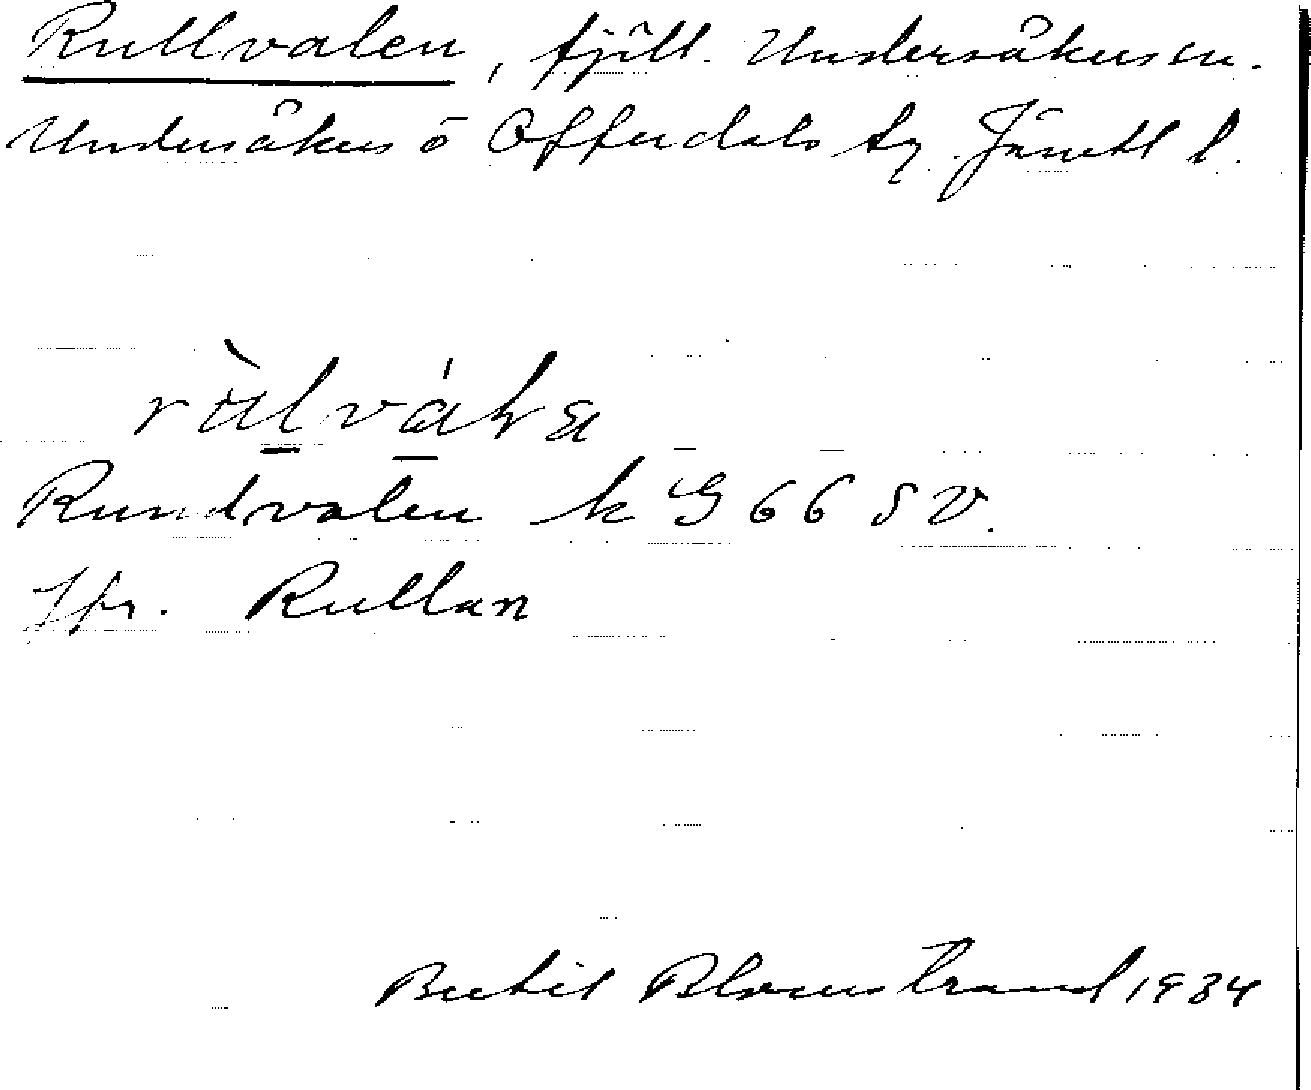 Rullvalen, fjäll. Undersåkers sn.
Undersåkers o Offerdals tg Jämtl l.
Rundvalen k G 66 SV.
Jfr. Rullan
Bertil Blomstrand 1934